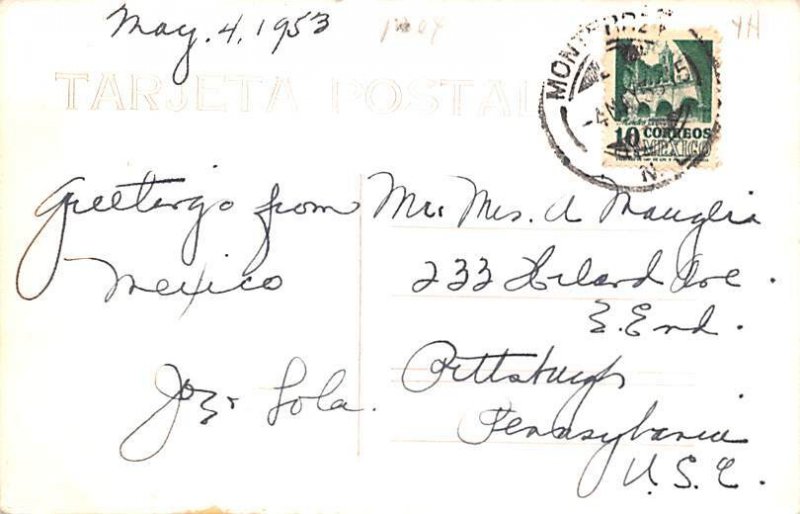 May. 4, 1953
TARJETA POSTAL
MONTERREY
N
10 CORREOS
MEXICO
Greetings from
Mexico
Joe & Lola.
Mr. Mrs. A Mauglia
233 Ave.
E. End.
Pittsburgh
Pennsylvania
U.S.